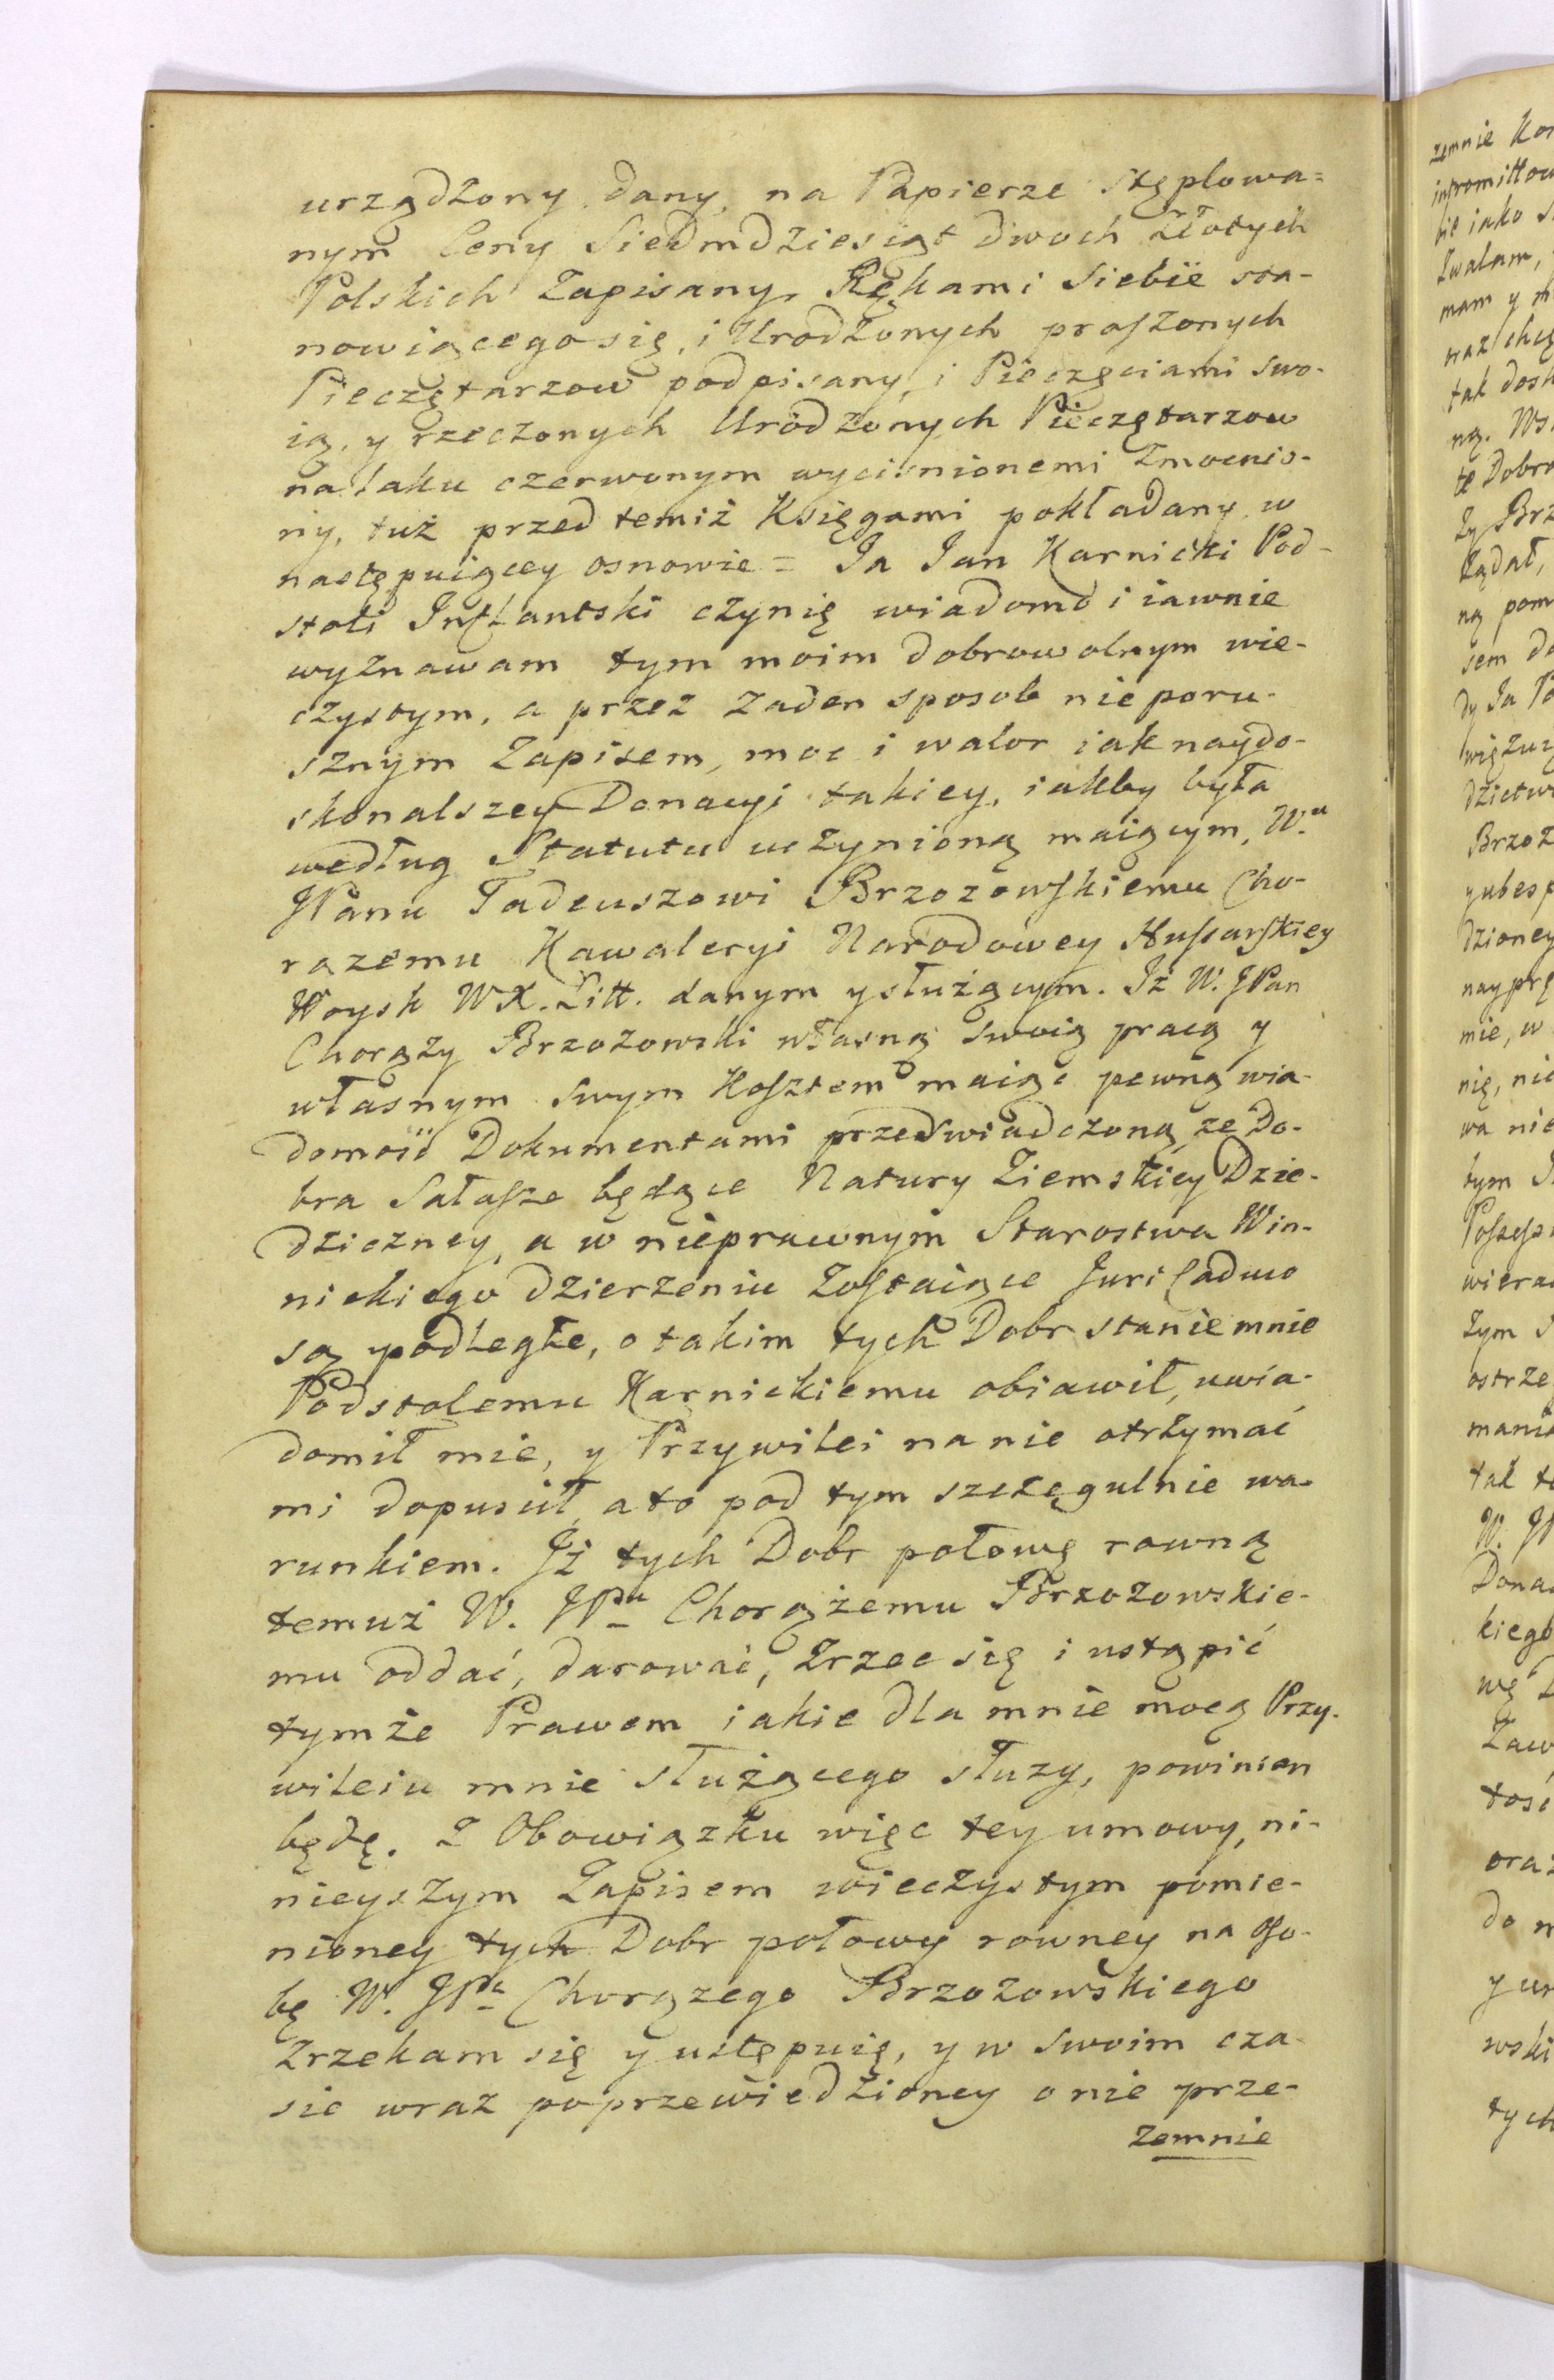 urządzony, dany, na Papierze stęplowa=
nym Ceny Siedmdziesiąt dwoch złotych
Polskich Zapisany, Rękami Siebie sta-
nowiącego się, i Urodzonych proszonych
Pieczętarzow podpisany, i Pieczęciami swo-
ią, y rzeczonych Urodzonych Pieczętarzow
na laku czerwonym wycisnionemi zmocnio-
ny, tuż przed temiż Księgami pokładany, w
następuiącey osnowie = Ja Jan Karnicki Pod-
stoli Inflantski czynię wiadomo i iawnie
wyznawam tym moim dobrowolnym wie-
czystym, a przez zaden sposob nieporu-
sznym Zapisem, moc i walor iak naydo-
skonalszey Donacyi takiey, iakby była
według Statutu uczynioną maiącym, W.u
JPanu Tadeuszowi Brzozowskiemu Cho-
razemu Kawaleryi Narodowey Hussarskiey
Woysk WX. Litt. danym y służącym. Iż W. JPan
Chorąży Brzozowski własną swoią pracą y
własnym swym Kosztem maiąc pewną wia-
domość Dokumentami przeswiadczoną, ze Do-
bra Sałasze będące Natury Ziemskiey Dzie-
dziczney, a w nieprawnym Starostwa Win-
nickiego dzierzeniu zostaiące Juri Caduco
są podległe, o takim tych Dobr stanie mnie
Podstolemu Karnickiemu obiawił, uwia-
domił mie, y Przywilei na nie otrzymać
mi dopuścił, a to pod tym szczegulnie wa-
runkiem. Iż tych Dobr połowę rowną
temuż W. JPu Chorążemu Brzozowskie-
mu oddać, darować, Zrzec się i ustąpić
tymże Prawem iakie dla mnie mocą Przy-
wileiu mnie służącego służy, powinien
będę. Z Obowiązku więc tey umowy, ni-
nieyszym Zapisem wieczystym pomie-
nioney tych Dobr połowy rowney na oso-
bę W. JPa Chorązego Brzozowskiego
Zrzekam się y ustępuię, y w swoim cza-
sie wraz po przewiedzioney o nie prze-
zemnie